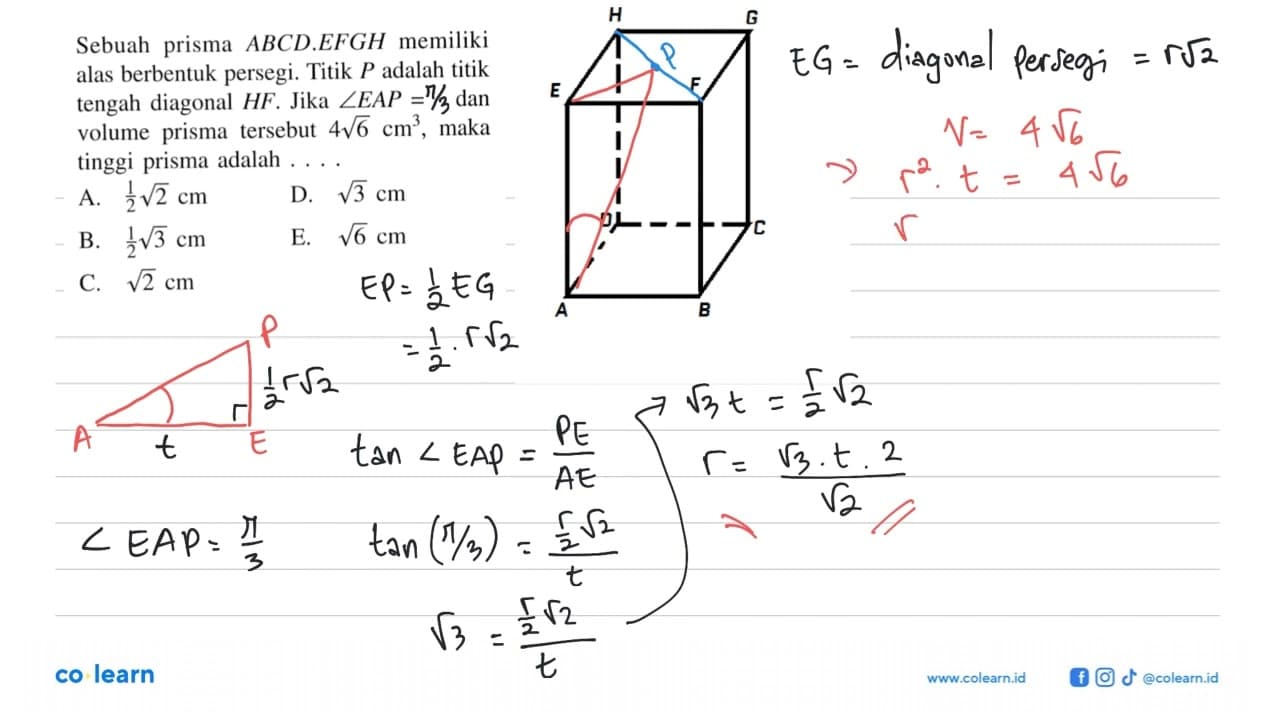 Sebuah prisma ABCD.EFGH memiliki
alas berbentuk persegi. Titik P adalah titik
tengah diagonal HF. Jika ∠EAP = π/3 dan
volume prisma tersebut 4√6 cm³, maka
tinggi prisma adalah . . . .
A. 1/2√2 cm D. √3 cm
B. 1/2√3 cm E. √6 cm
C. √2 cm
H G
P
E F
D C
A B
EG = diagonal persegi = r√2
V = 4√6
→ r². t = 4√6
r
EP = 1/2 EG
= 1/2 . r√2
P
1/2 r√2
A t E
∠ EAP = π/3
tan ∠ EAP = PE/AE
tan (π/3) = r/2 √2 / t
√3 = r/2 √2 / t
→ √3 t = r/2 √2
r = √3 . t . 2 / √2
co learn
www.colearn.id @colearn.id